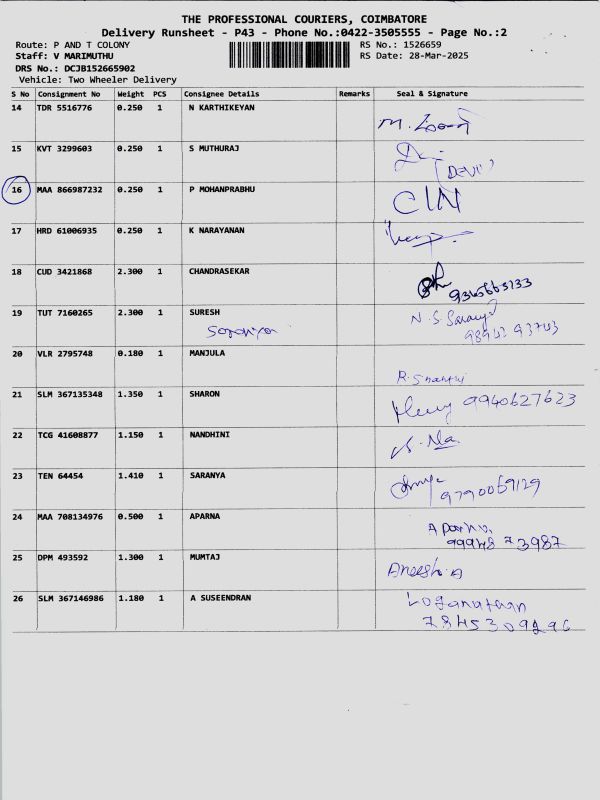 THE PROFESSIONAL COURIERS, COIMBATORE
Delivery Runsheet - P43 - Phone No.:0422-3505555 - Page No.:2
Route: P AND T COLONY
Staff: V MARIMUTHU
DRS No.: DCJB152665902
Vehicle: Two Wheeler Delivery
RS No.: 1526659
RS Date: 28-Mar-2025
S No Consignment No Weight PCS Consignee Details Remarks Seal & Signature
14 TDR 5516776 0.250 1 N KARTHIKEYAN
15 KVT 3299603 0.250 1 S MUTHURAJ
(DEVI)
16 MAA 866987232 0.250 1 P MOHANPRABHU
17 HRD 61006935 0.250 1 K NARAYANAN
18 CUD 3421868 2.300 1 CHANDRASEKAR
19 TUT 7160265 2.300 1 SURESH
N.S.
20 VLR 2795748 0.180 1 MANJULA
R. Shanthi
21 SLM 367135348 1.350 1 SHARON
9940627623
22 TCG 41608877 1.150 1 NANDHINI
23 TEN 64454 1.410 1 SARANYA
9790069129
24 MAA 708134976 0.500 1 APARNA
Aparna
99948 73987
25 DPM 493592 1.300 1 MUMTAJ
Aneesh.A
26 SLM 367146986 1.180 1 A SUSEENDRAN
Loganathan
7845309296